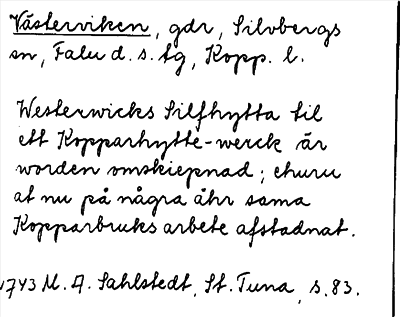 Västerviken, gdr, Silvbergs
sn, Falu d. s. tg, Kopp. l.
Westerwicks Silfhytta til
ett Kopparhytte-werck är
worden omskiepnad; churu
at nu på några åhr sama
Kopparbruks arbete afstadnat.
1743 M. A. Sahlstedt, St. Tuna, s. 83.